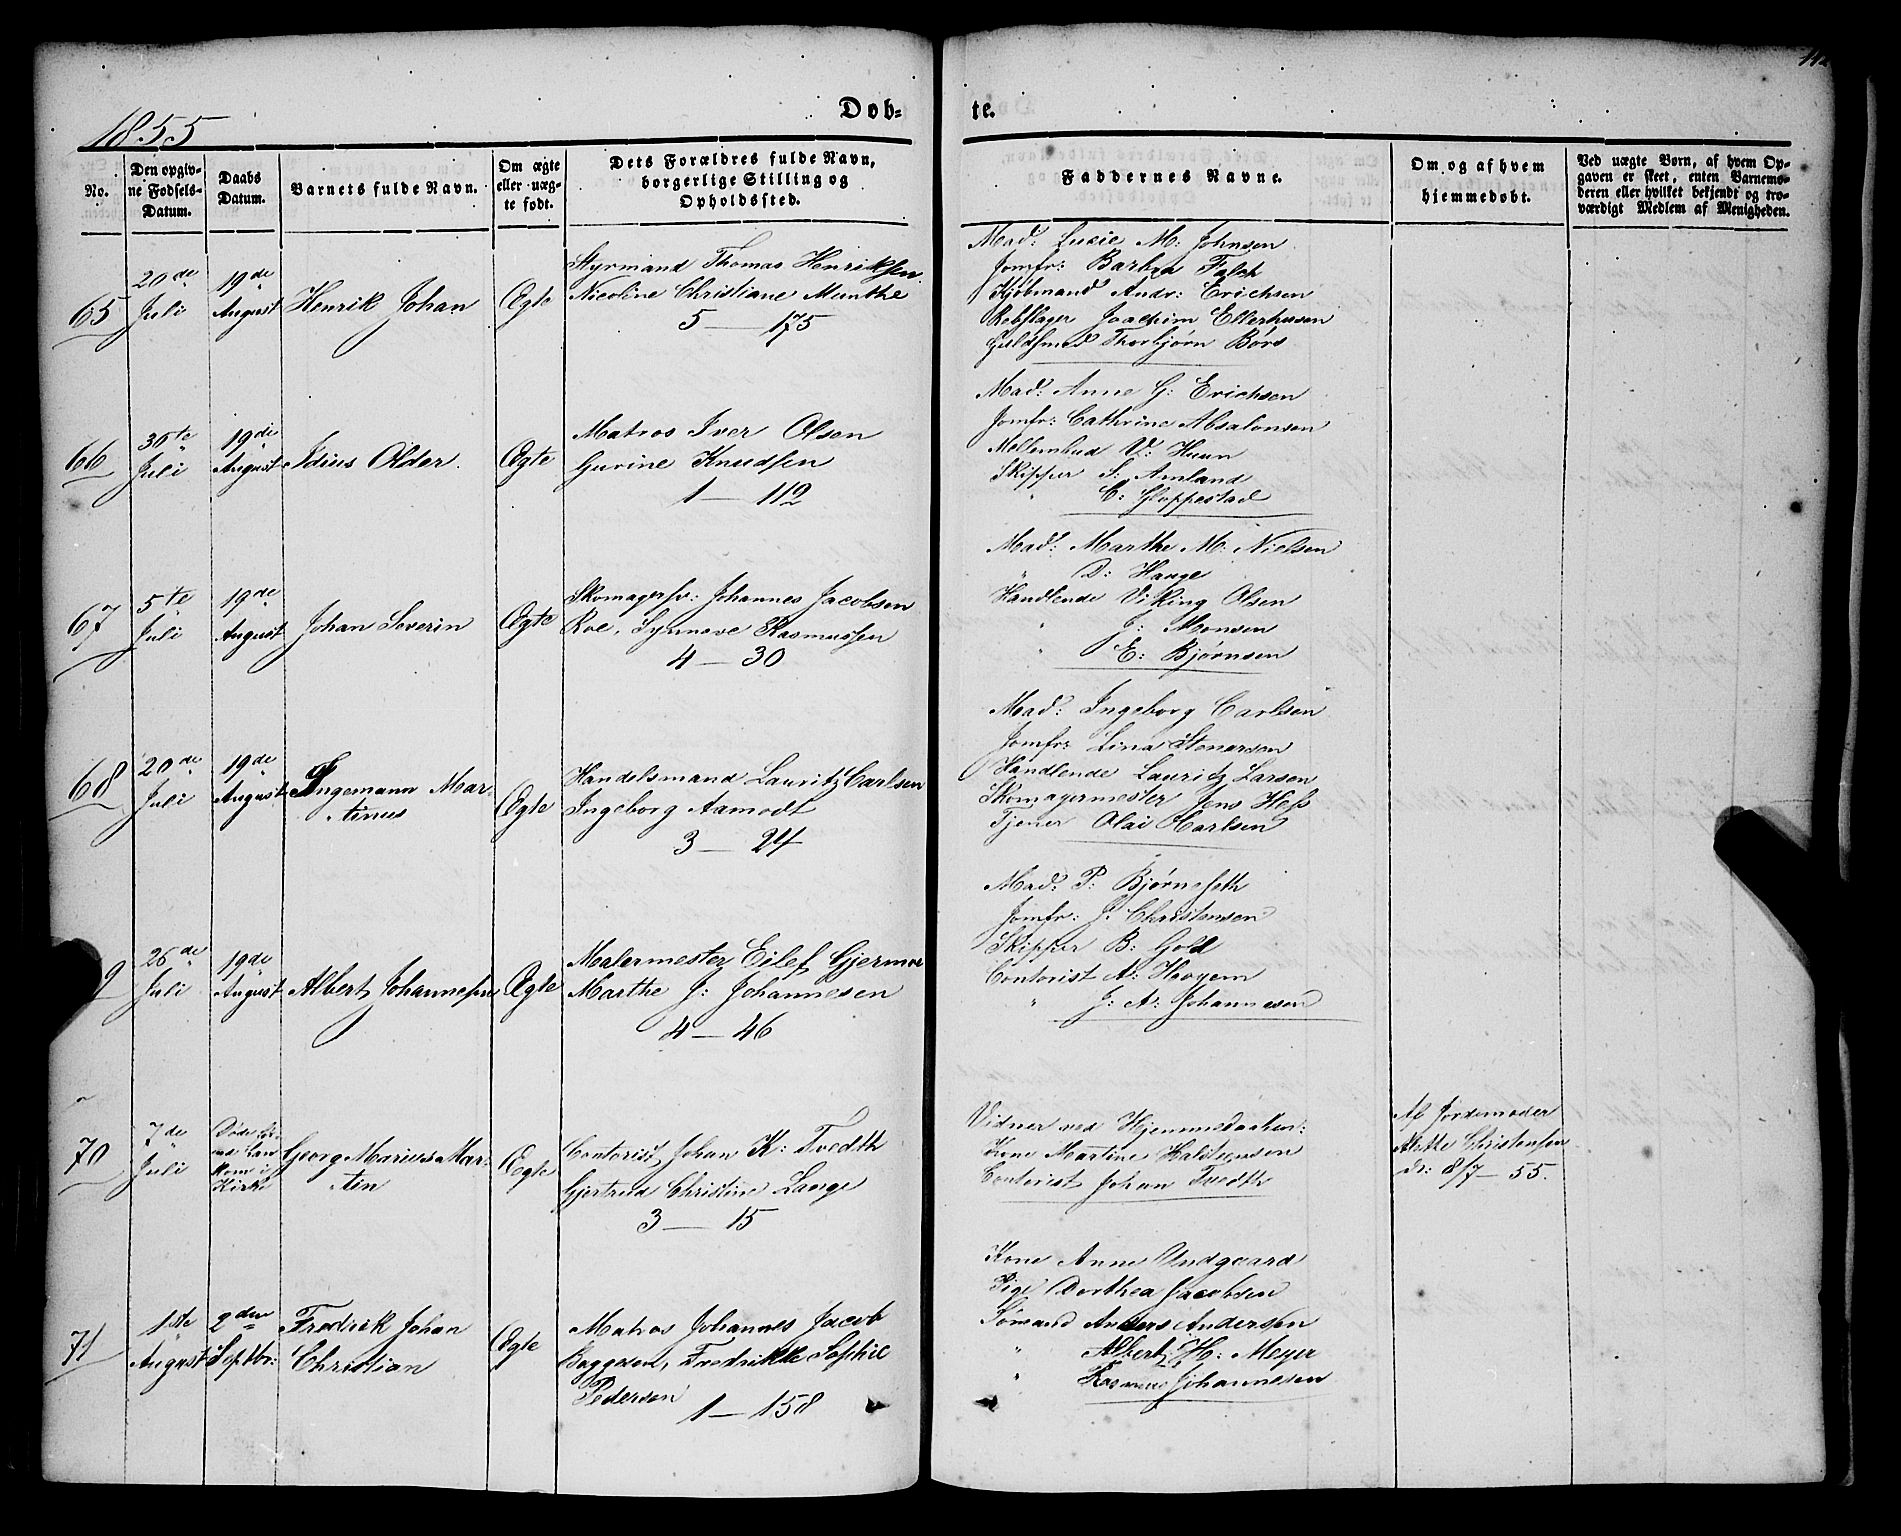 1855
Døb=
te.
No.
Den opgiv-
ne Fødsels-
Datum.
Daabs
Datum.
Barnets fulde Navn.
Om ægte
eller uæg-
te født.
Dets Forældres fulde Navn,
borgerlige Stilling og
Opholdssted.
Faddernes Navne.
Om og af hvem
hjemmedøbt.
Ved uægte Børn, af hvem Op-
gaven er skeet, enten Barnemo-
deren eller hvilket bekjendt og tro-
værdigt Medlem af Menigheden.
65
20de
Juli
19de
August
Henrik Johan
Ægte
Styrmand Thomas Henriksen
Nicoline Christiane Munthe
5 — 175
Mad: Lucie M: Johnsen
Jomfr: Barbra Falch
Kjøbmand Andr: Erichsen
Rebslager Joachim Ellerhusen
Guldsmed Thorbjørn Bors
66
30te
Juli
19de
August
Idius Older.
Ægte
Matros Iver Olsen
Gurine Knudsen
1 — 112
Mad: Anne G: Erichsen
Jomfr: Cathrine Absalonsen
Mellembud V: Huun
Skipper S: Amland
" C: Gloppestad
67
5te
Juli
19de
August
Johan Severin
Ægte
Skomagersv: Johannes Jacobsen
Roe, Synneve Rasmussen
4 — 30
Mad: Marthe M: Nielsen
" D: Hauge
Handlende Viking Olsen
" J: Monsen
" E: Bjørnsen
68
20de
Juli
19de
August
Ingemann Mar-
tinus
Ægte
Handelsmand Lauritz Carlsen
Ingeborg Aamodt
3 — 24
Mad: Ingeborg Carlsen
Jomfr: Lina Stenersen
Handlende Lauritz Larsen
Skomagermester Jens Hess
Tjener Olai Carlsen
9
26de
Juli
19de
August
Albert Johannesen
Ægte
Malermester Eilef Gjermoe
Marthe J: Johannesen
4 — 46
Mad: P: Bjørneseth
Jomfr: J. Christensen
Skipper B: Gold
Contorist A: Høyem
" J: A: Johannesen
70
7de
Juli
Døde før
Kom i
Kirke
Georg Marius Mar-
tin
Ægte
Contorist Johan K: Tvedth
Gjertrud Christine Lange
3 — 15
Vidner ved Hjemmedaaben:
Kone Martine Haldorsen
Contorist Johan Tvedth
Af Jordemoder
Mette Christensen
d: 8/7 — 55.
71
1ste
August
2den
Septbr:
Fredrik Johan
Christian
Ægte
Matros Johannes Jacob
Baggesen, Fredrikke Sophie
Pedersen
1 — 158
Kone Anne Undgaard
Pige Dorthea Jacobsen
Sømand Anders Andersen
" Albert H: Meyer
" Rasmus Johannesen